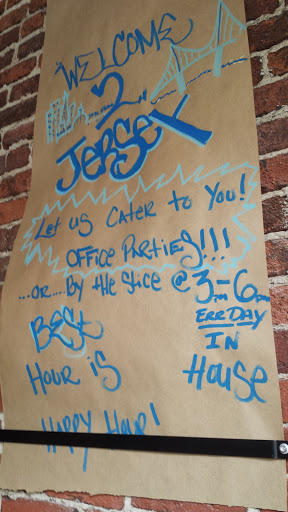 WELCOME
2
JERSEY
LET US CATER TO YOU!
OFFICE PARTIES!!!
...OR.... BY tHE SLICE @ 3PM-6PM
BESt
ERRDAY
HOUR iS
IN
HOUSE
HAPPY HOUR!